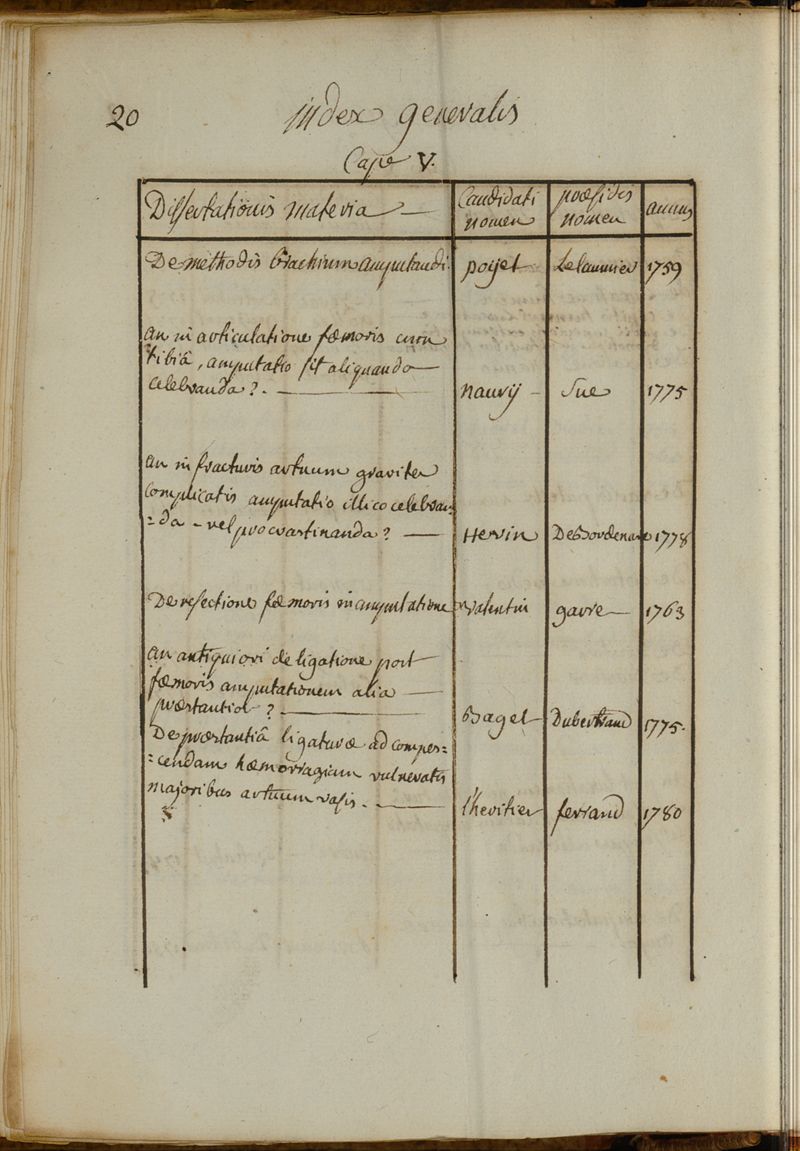 20
index generalis
Cape V.
Dissertationis materia — Candidati nomen præsidis nomen annus
De methodis brachium amputandi. poyet Lelaumier 1759
an in articulatione fœmoris cum
tibiâ, amputatio sit aliquando —
celebranda? . — naury — Sue 1775
an in fracturis artuum graviter
complicatis amputatio illico celebran-
=da - vel procrastinanda? — Hervin Desbordenave 1778
De resectione fœmoris in amputatione Valentin gavre — 1763
an antiquiori deligatione post —
fœmoris amputationem alia —
præstantior ? — Baget Dubertrand 1775.
De præstantiâ ligaturæ ad compes=
=cendam hæmorragiam vulneratis
majoribus artuum vasis. — l'heritier ferrand 1780